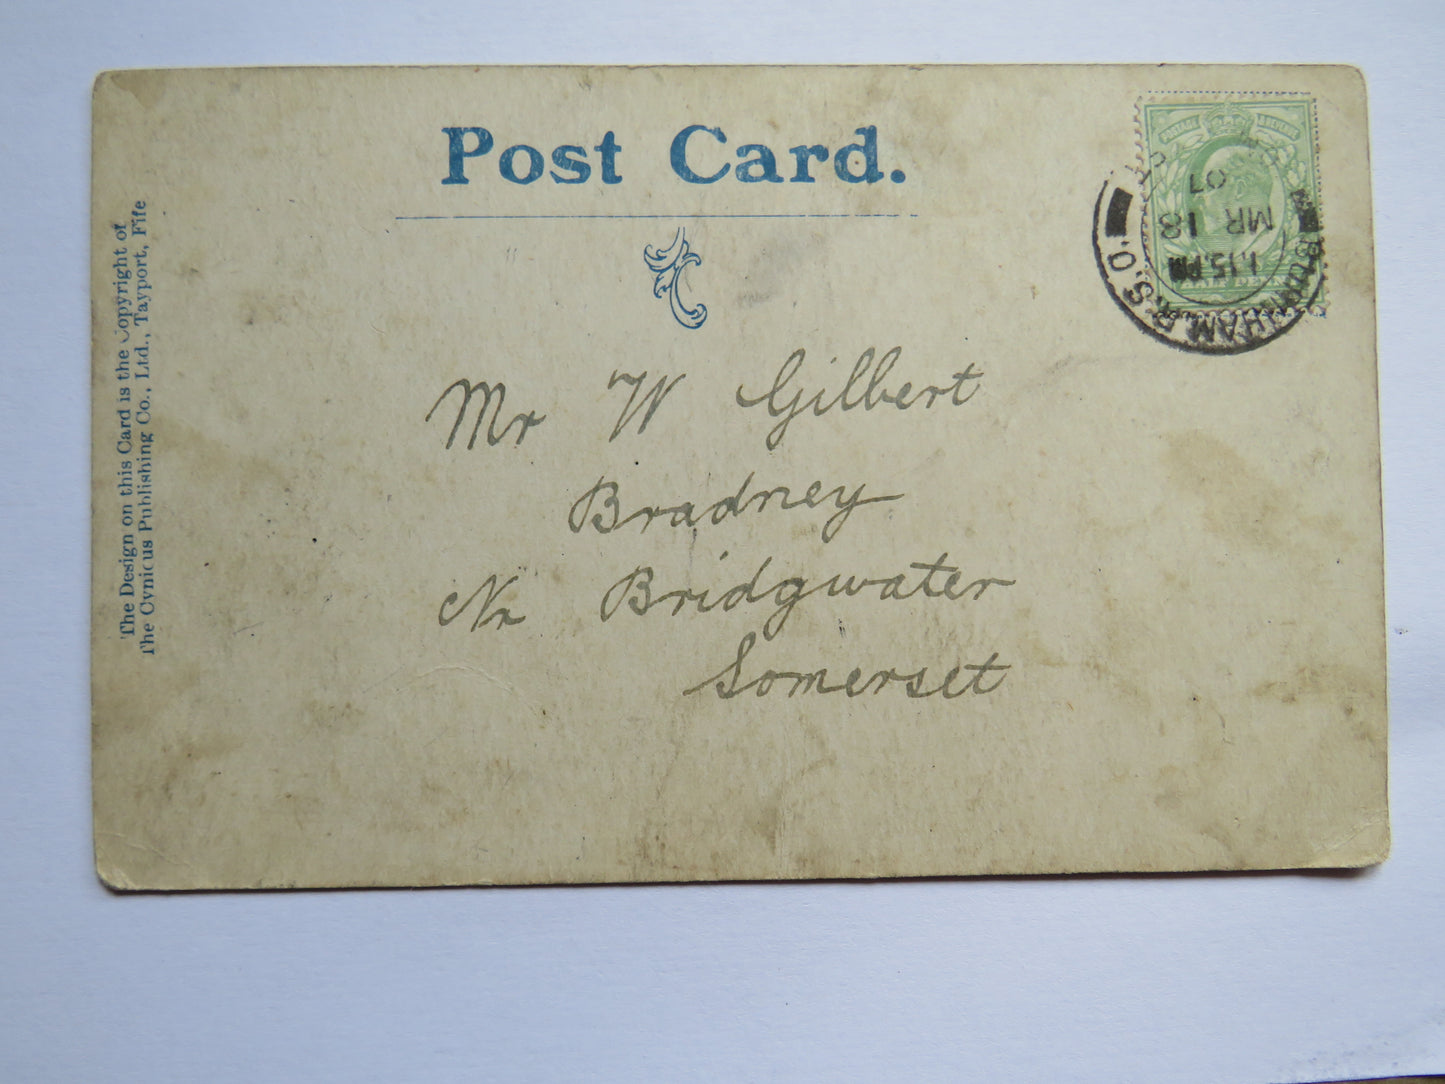 Post Card.
The Design on this Card is the Copyright of
The Cynicus Publishing Co., Ltd., Tayport, Fife
POSTAGE REVENUE
R.S.O.
1.15.PM
MR 18
07
Mr W Gilbert
Bradney
Nr Bridgwater
Somerset